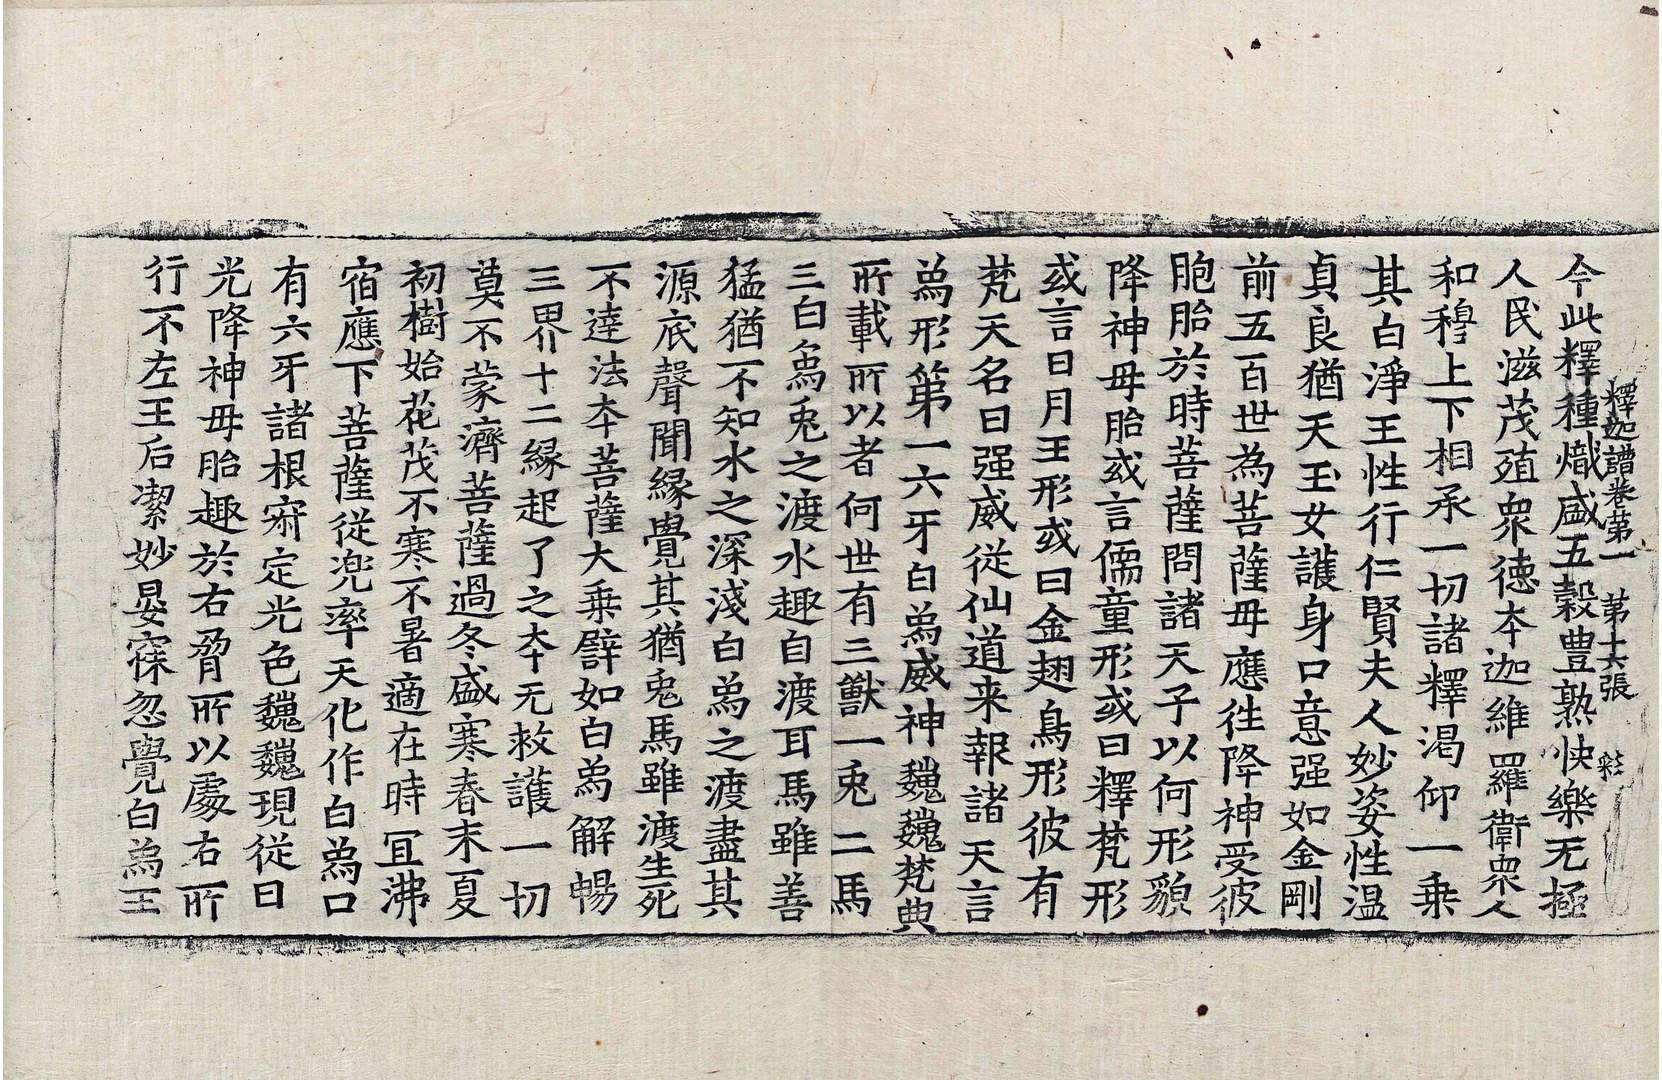 釋迦譜卷第一　第十六張　
今此釋種熾盛五穀豊熟快樂无極
人民滋茂殖衆徳夲迦維羅衛衆人
和穆上下相承一切諸釋渇仰一乗
其白淨王性行仁賢夫人妙姿性温
貞良猶天玉女護身口意强如金剛
前五百世為菩薩毋應徃降神受彼
胞胎於時菩薩問諸天子以何形貌
降神毋胎或言儒童形或曰釋梵形
或言日月王形或曰金翅鳥形彼有
梵天名曰强威従仙道来報諸天言
爲形第一六牙白爲威神巍巍梵典
所載所以者何世有三獸一兎二馬
三白爲兎之渡水趣自渡耳馬雖善
猛猶不知水之深淺白爲之渡盡其
源底聲聞緣覺其猶兎馬雖渡生死
不逹法夲菩薩大乗譬如白爲解暢
三界十二緣起了之夲无救護一切
莫不蒙濟菩薩過冬盛寒春末夏
初樹始花茂不寒不暑適在時冝沸
宿應下菩薩從兠率天化作白爲口
有六牙諸根寂定光色巍巍現從日
光降神毋胎趣於右脅所以處右所
行不左王后潔妙晏寐忽覺白爲王